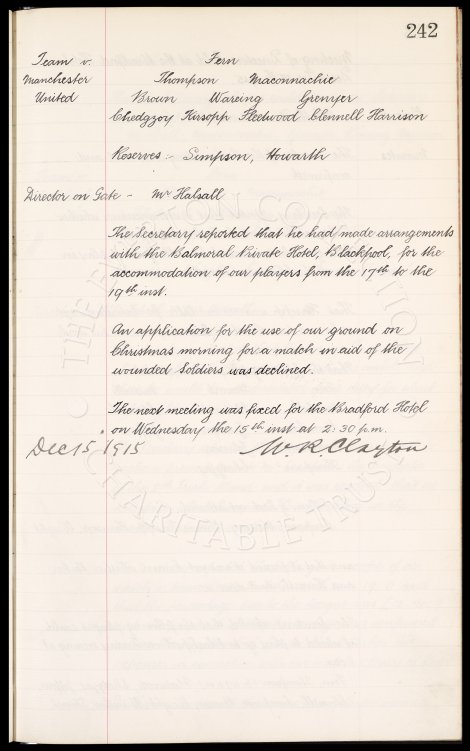 242
Team v. Fern
Manchester Thompson Maconnachie
United Brown Wareing Grenyer
Chedgzoy Kirsopp Fleetwood Clennell Harrison
Reserves:- Simpson, Howarth
Director on Gate - Mr Halsall
The Secretary reported that he had made arrangements
with the Balmoral Private Hotel, Blackpool, for the
accommodation of our players from the 17th to the
19th inst.
An application for the use of our ground on
Christmas morning for a match in aid of the
wounded Soldiers was declined.
The next meeting was fixed for the Bradford Hotel
on Wednesday the 15th inst at 2:30 p.m.
Dec 15 1915 W. R. Clayton
CHARITABLE TRUST